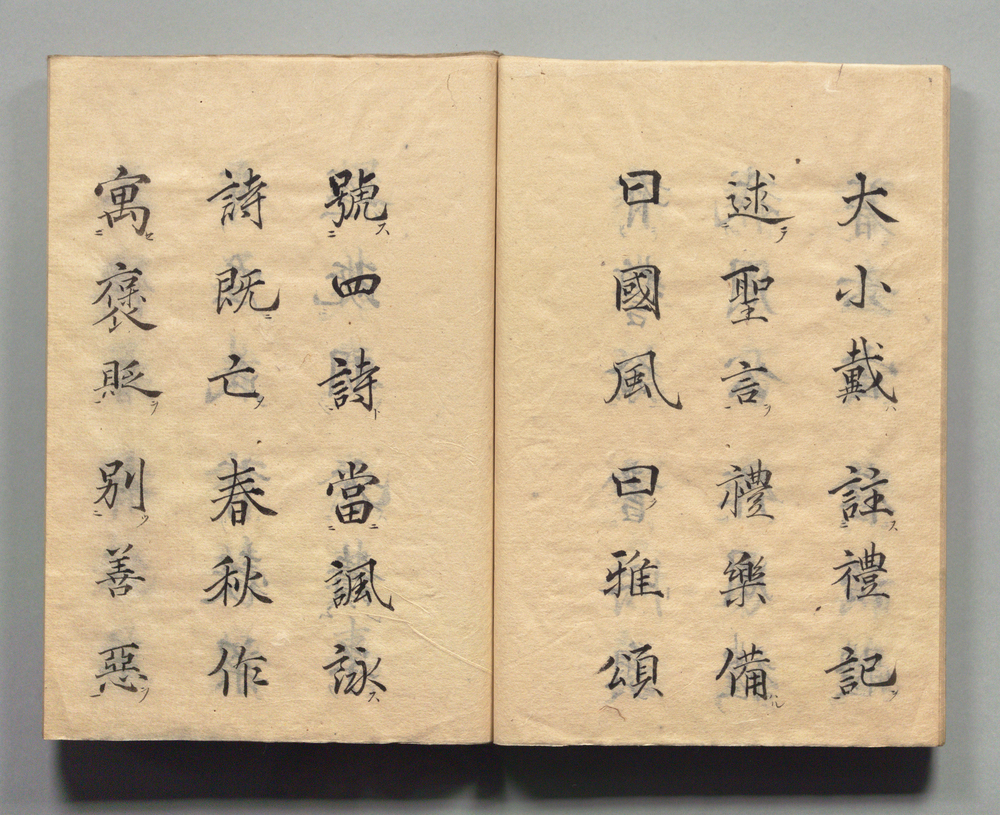 大小戴註禮記
述聖言禮樂備
曰國風曰雅頌
號四詩當諷詠
詩既亡春秋作
寓褒貶別善惡